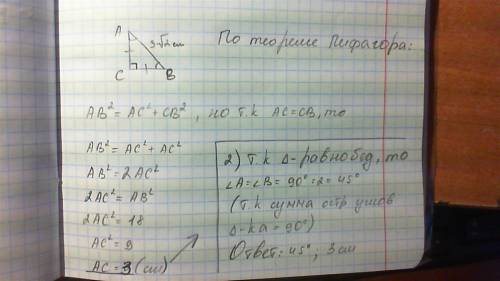 A
3√2 см
C
B
По теореме Пифагора:
AB² = AC² + CB², но т.к AC=CB, то
AB² = AC² + AC²
AB² = 2AC²
2AC² = AB²
2AC² = 18
AC² = 9
AC = 3 (см)
2) Т.к Δ-равнобед, то
∠A=∠B = 90°÷2= 45°
(т.к сумма остр углов
Δ-ка = 90°)
Ответ: 45°; 3 см